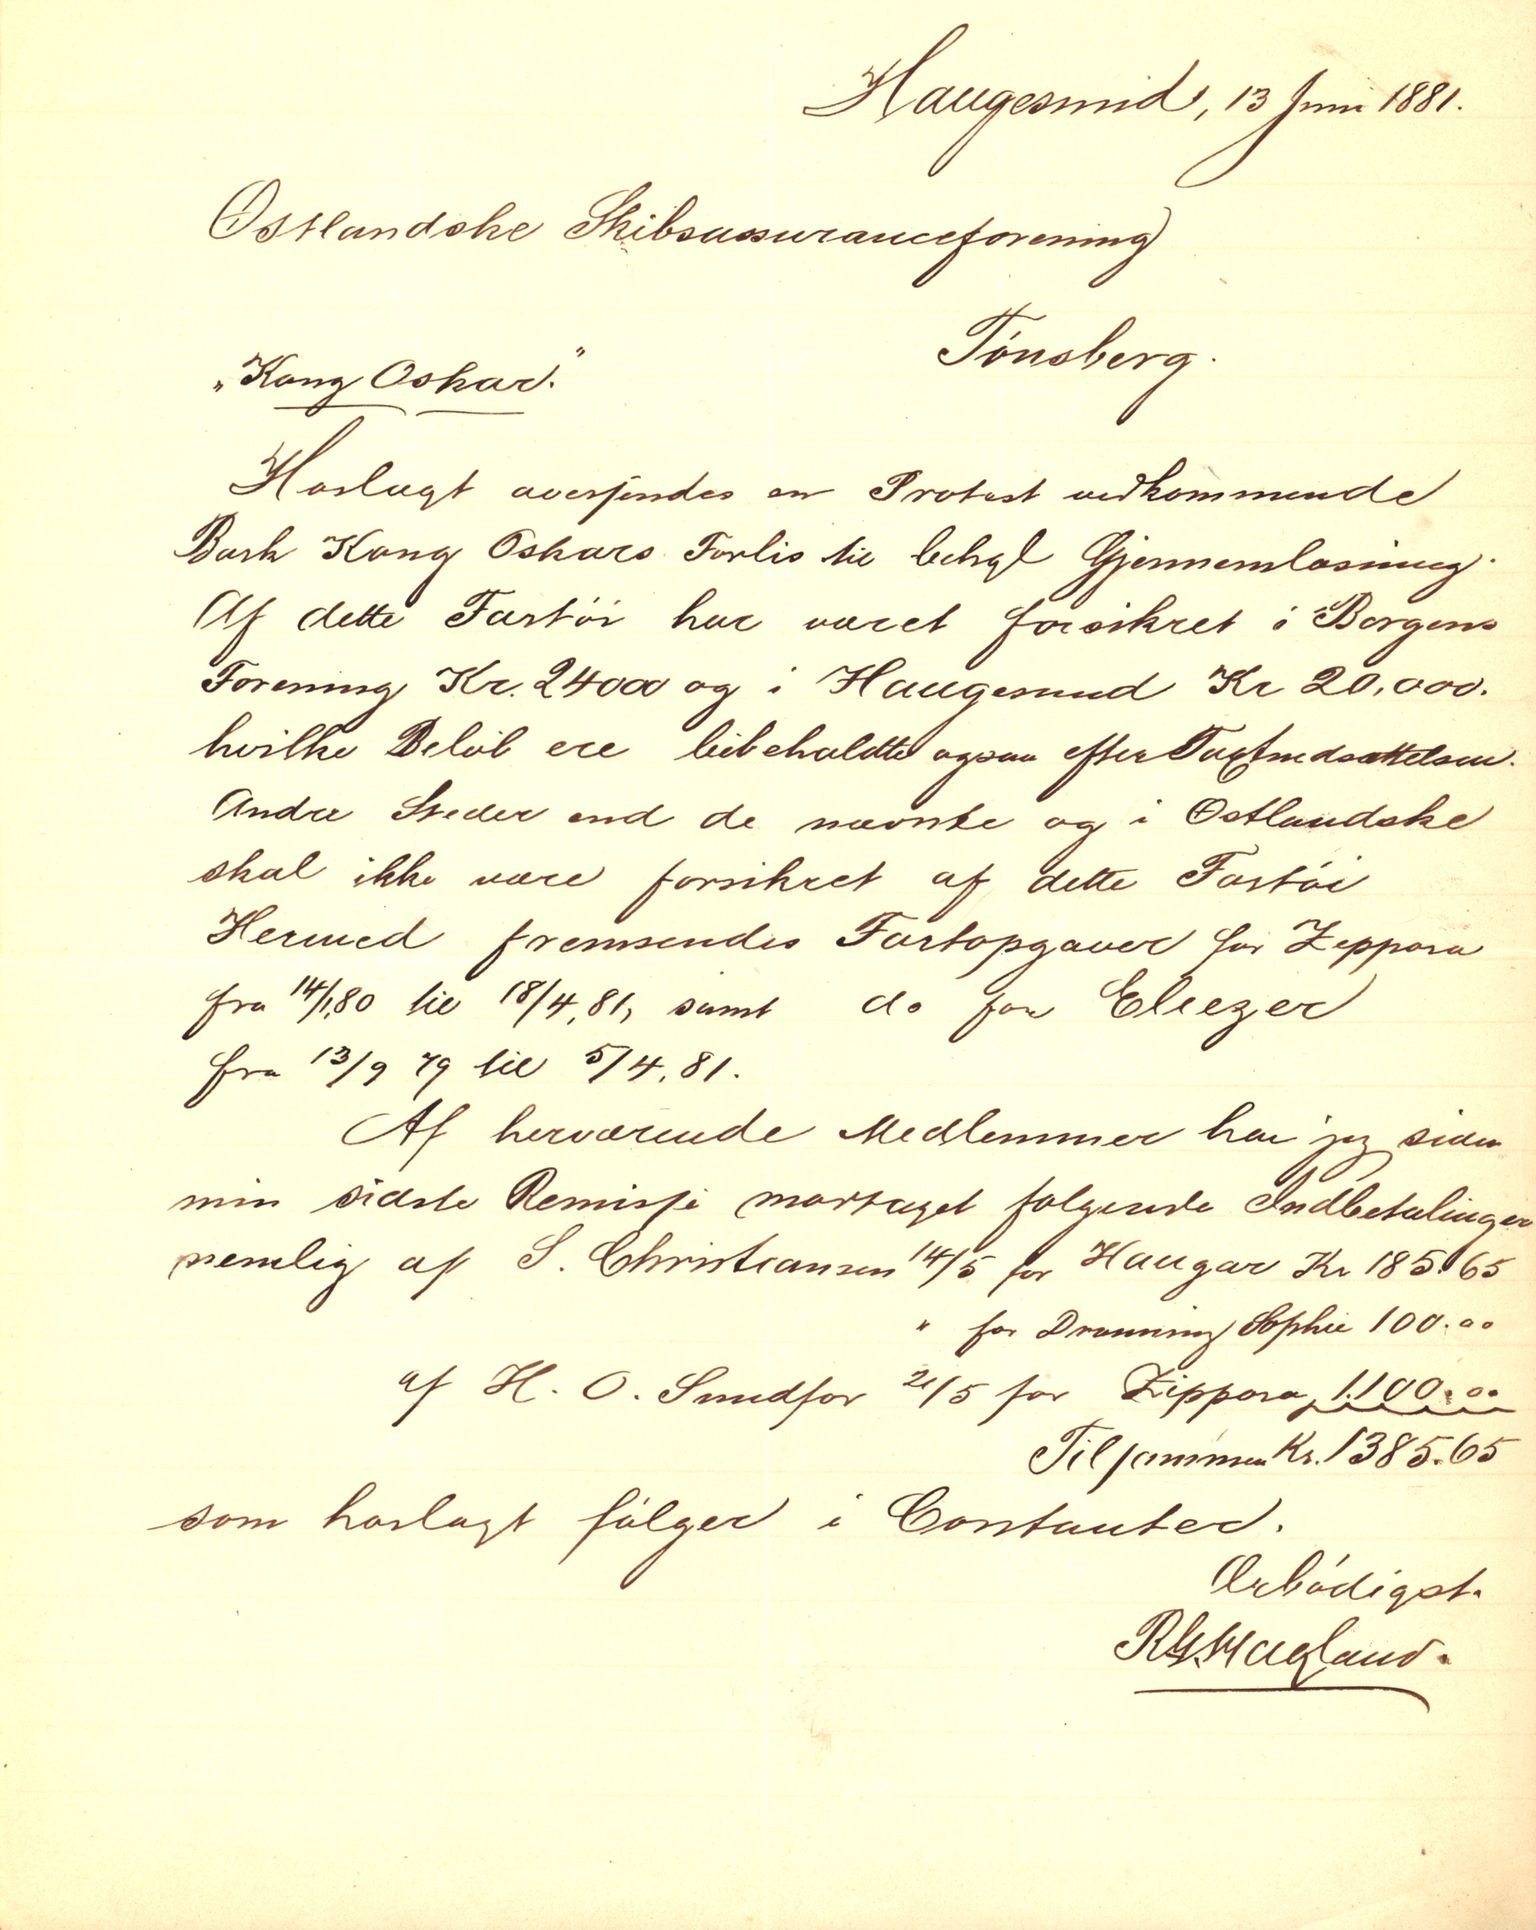 Haugesund, 13 Juni 1881.
Østlandske Skibsassuranceforening
Tönsberg.
„Kong Oskar."
Hoslagt oversendes en Protest vedkommende
Bark Kong Oskars Forlis til behgl Gjennemläsning.
Af dette Fartöi har været forsikret i Bergens
Forening Kr. 24000 og i Haugesund Kr 20,000.
hvilke Belöb ere bibeholdte ogsaa efter Taxtnedsættelsen.
Andre Steder end de nævnte og i Østlandske
skal ikke være forsikret af dette Fartöi
Hermed fremsendes Fartopgaver for Zeppora
fra 14/1,80 til 18/4,81, samt do for Eliezer
fra 13/9 79 til 5/4,81.
Af herværende Medlemmer har jeg siden
min sidste Remisse mottaget folgende Indbetalinger
nemlig af S. Christiansen 14/5 for Haugar Kr 185.65
" for Dronning Sophie 100.00
af H. O. Sundfor 21/5 for Zippora 1.100.00
Tilsammen Kr. 1385.65
som hoslagt fölger i Contanter.
Ærbödigst.
Hagland.